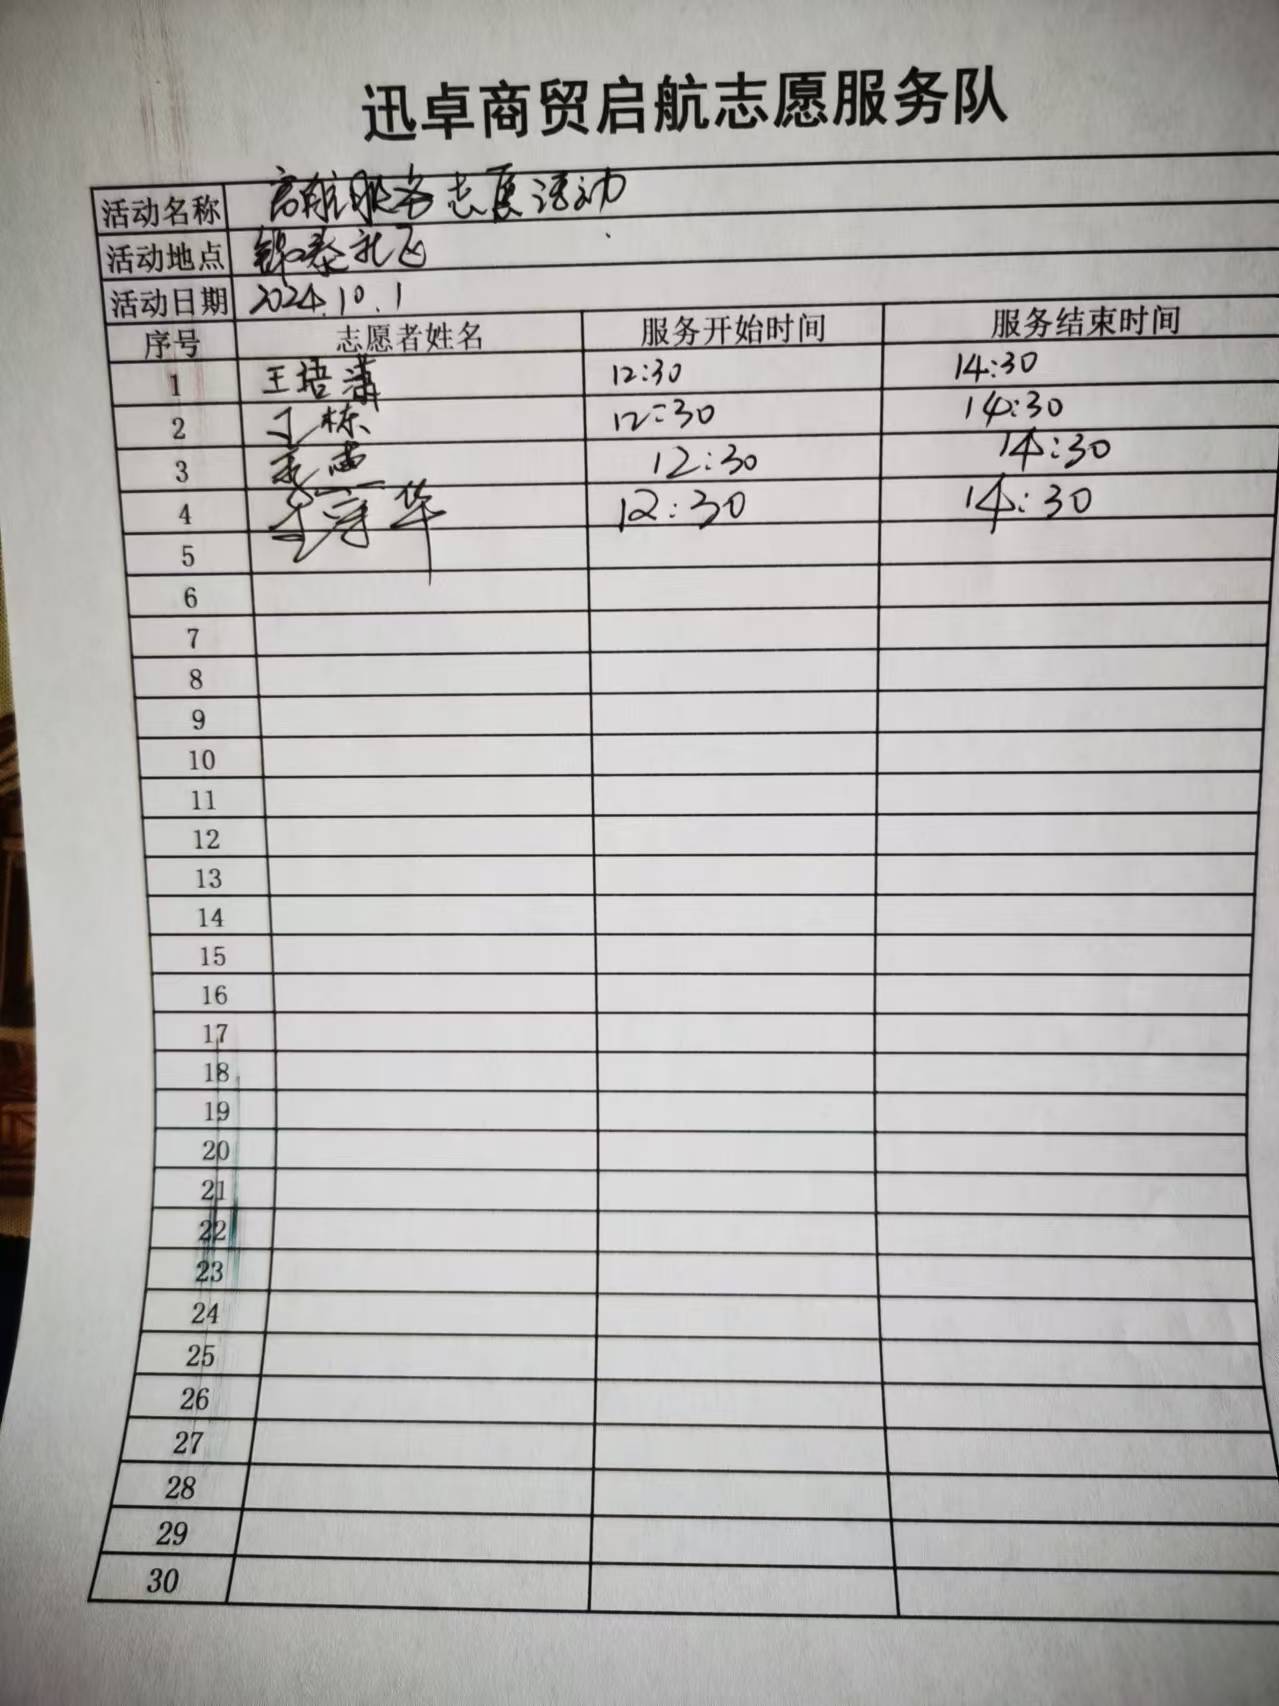 迅卓商贸启航志愿服务队
活动名称 启航服务志愿活动
活动地点 锦泰社区
活动日期 2024.10.1
序号 志愿者姓名 服务开始时间 服务结束时间
1 王培潇 12:30 14:30
2 王栋 12:30 14:30
3 12:30 14:30
4 华 12:30 14:30
5
6
7
8
9
10
11
12
13
14
15
16
17
18
19
20
21
22
23
24
25
26
27
28
29
30